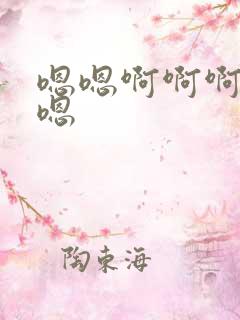 嗯嗯啊啊啊
嗯
陶东海